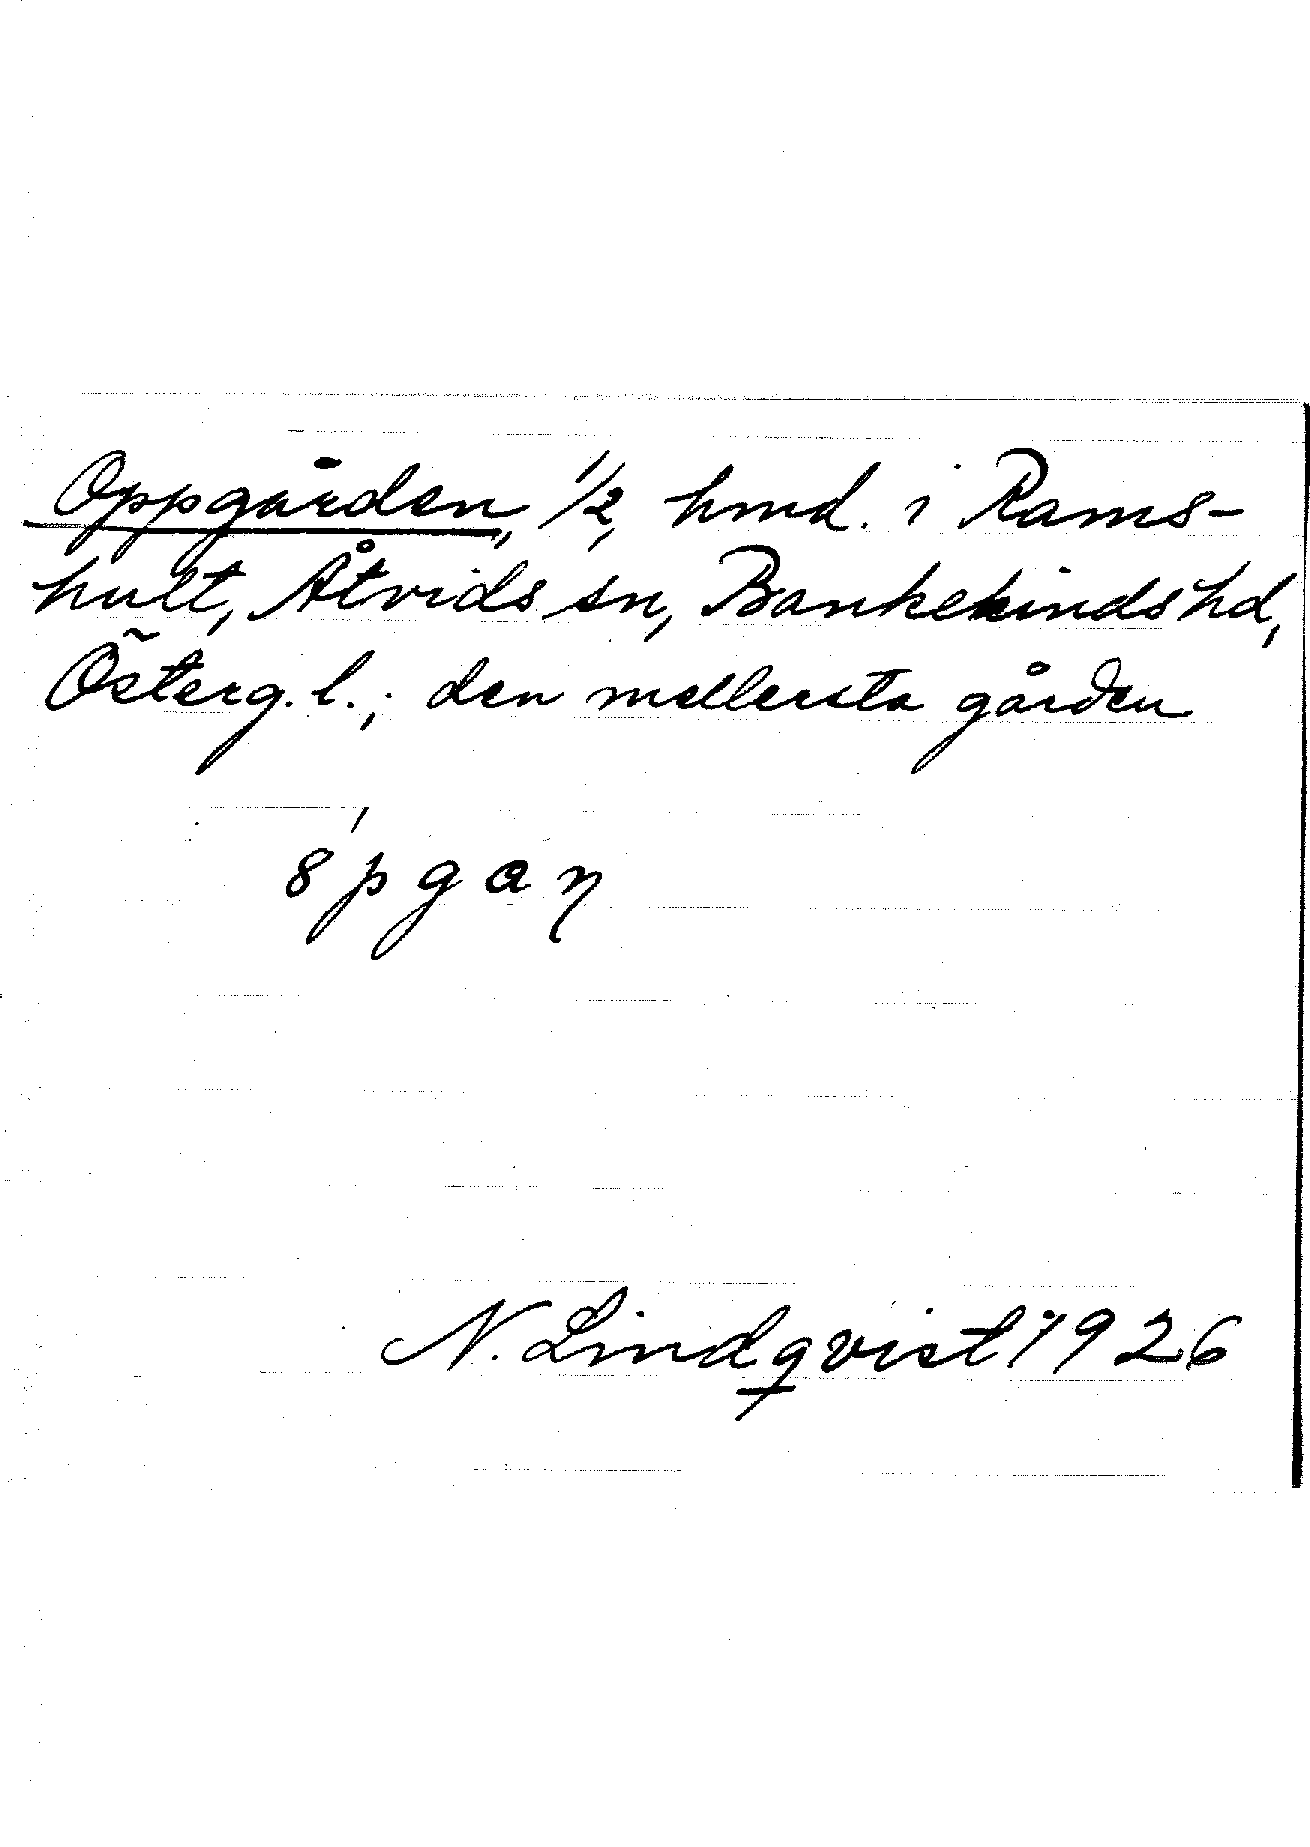 Oppgården, 1/2 hmd. i Rams-
hult, Åtvids sn, Bankekinds hd,
Österg. l.; den mellersta gården
N. Lindqvist 1926